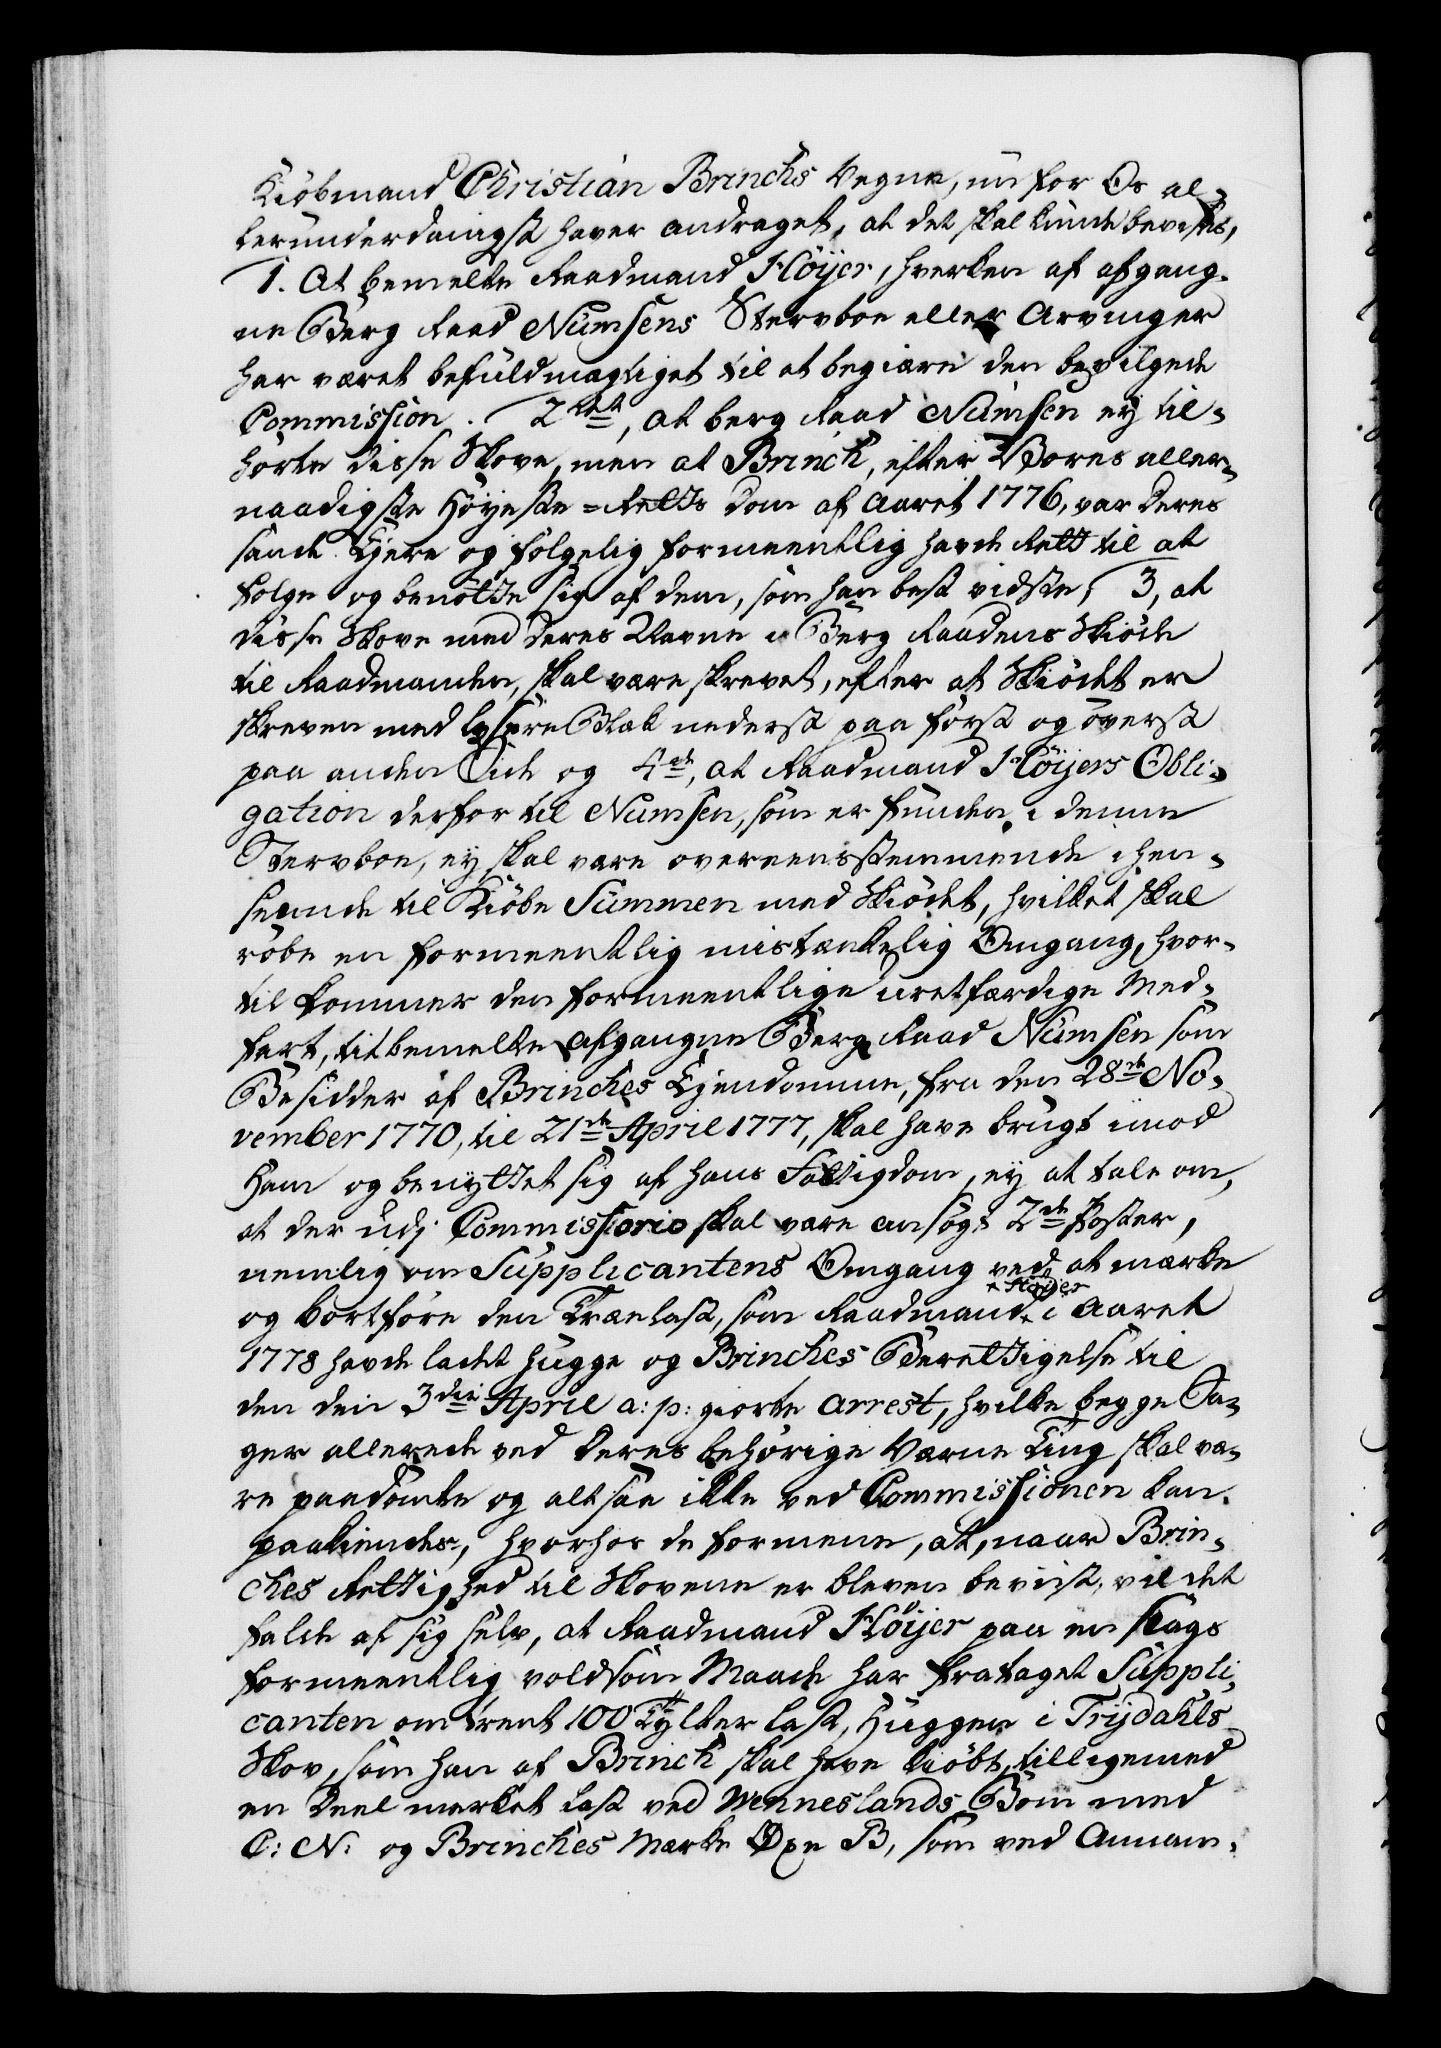 Kiöbmand Christian Brinchs Vegne, nu for Os al-
lerunderdanigst haver andraget, at det skal kunde bevises,
1. At bemelte Raadmand Höijer, hverken af afgang-
ne Berg Raad Numsens Stervboe eller Arvinger
har været befuldmægtiget til at begiære den bevilgede
Commission. 2det, at berg Raad Numsen ey til-
hørte disse Skove, men at Brinch, efter Vores aller-
naadigste Höyeste-Retts Dom af Aaret 1776, var deres
sande Ejere og fölgelig formeentlig havde Rett til at
følge og benötte sig af dem, som han best vidste, 3, at
disse Skove med deres Navne i Berg Raadens Skiöde
til Raadmanden, skal være skrevet, efter at Skiödet er
skreven med lysere Blæk nederst paa först og överst
paa anden Side og 4de, at Raadmand Höijers Obli-
gation derfor til Numsen, som er funden i denne
Stervboe, ey skal være overeensstemmende i hen-
seende til Kiöbe Summen med Skiödet, hvilket skal
röbe en formeentlig mistænkelig Omgang, hvor-
til kommer den formeentlige uretfærdige Med-
fart, titbemelte afgangne Berg Raad Numsen som
Besidder af Brinches Ejendomme, fra den 28de No-
vember 1770, til 21de April 1777, skal have brugt imod
Ham og benyttet sig af hans Fattigdom, ey at tale om,
at der udj Commissorio skal være ansögt 2de Poster,
nemlig om Supplicantens Omgang ved at mærke
og bortföre den Trælast, som Raadmand * Höijer i Aaret
1778 havde ladet hugge og Brinches Berettigelse til
den den 3die April a: p: giorte Arrest, hvilke begge Sa-
ger allerede ved deres behörige Værne Ting skal væ-
re paadömte og altsaa ikke ved Commissionen kan
paakiendes, hvorhos de formene, at, naar Brin-
ches Rettighed til Skovene er bleven bevist, vil det
falde af sig selv, at Raadmand Höijer paa en slags
formeentlig voldsom Maade har frataget Suppli-
canten omtrent 100 Tylter Last, Huggen i Trijdahls
Skov, som han af Brinch skal have kiöbt, tilligemed
en Deel mærket Last ved Wenneslands Bom med
C: N: og Brinches Mærke Öxe B, som ved Annam-